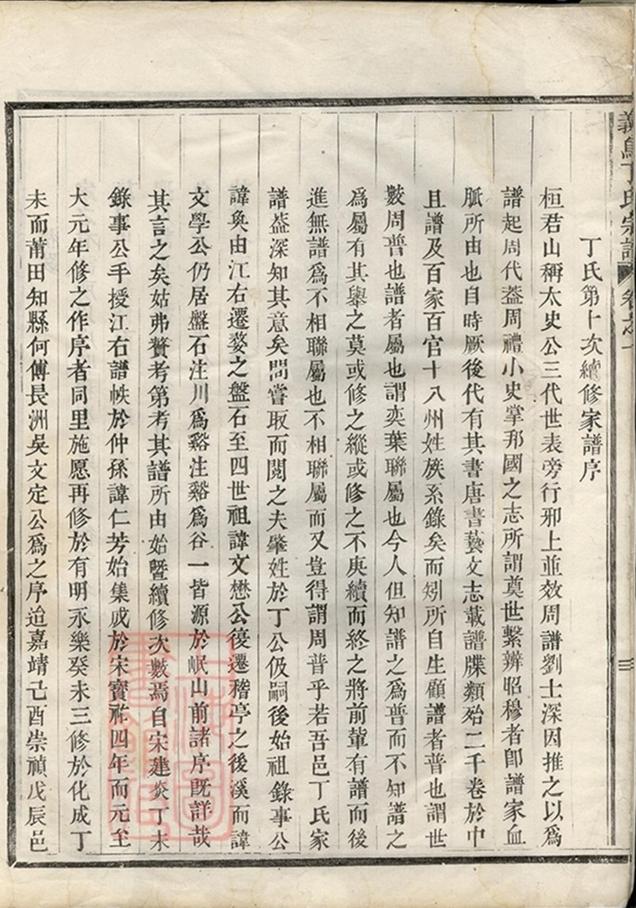 義烏丁氏宗譜 卷之一
三
丁氏第十次續修家譜序
桓君山稱太史公三代世表旁行邪上並效周譜劉士深因推之以爲
譜起周代葢周禮小史掌邦國之志所謂奠世繫辨昭穆者卽譜家血
脈所由也自時厥後代有其書唐書藝文志載譜牒類殆二千卷於中
且譜及百家百官十八州姓族系錄矣而矧所自生顧譜者普也謂世
數周普也譜者屬也謂奕葉聯屬也今人但知譜之爲普而不知譜之
爲屬有其舉之莫或修之縱或修之不庚續而終之將前輩有譜而後
進無譜爲不相聯屬也不相聯屬而又豈得謂周普乎若吾邑丁氏家
譜葢深知其意矣間嘗取而閱之夫肇姓於丁公伋嗣後始祖錄事公
諱奐由江右遷婺之盤石至四世祖諱文懋公復遷稽亭之後溪而諱
文學公仍居盤石注川爲谿注谿爲谷一皆源於岷山前諸序旣詳哉
其言之矣姑弗贅考第考其譜所由始曁續修次數焉自宋建炎丁未
錄事公手授江右譜帙於仲孫諱仁芳始集成於宋寶祐四年而元至
大元年修之作序者同里施愿再修於有明永樂癸未三修於化成丁
未而莆田知縣何傅長洲吳文定公爲之序迨嘉靖己酉崇禎戊辰邑